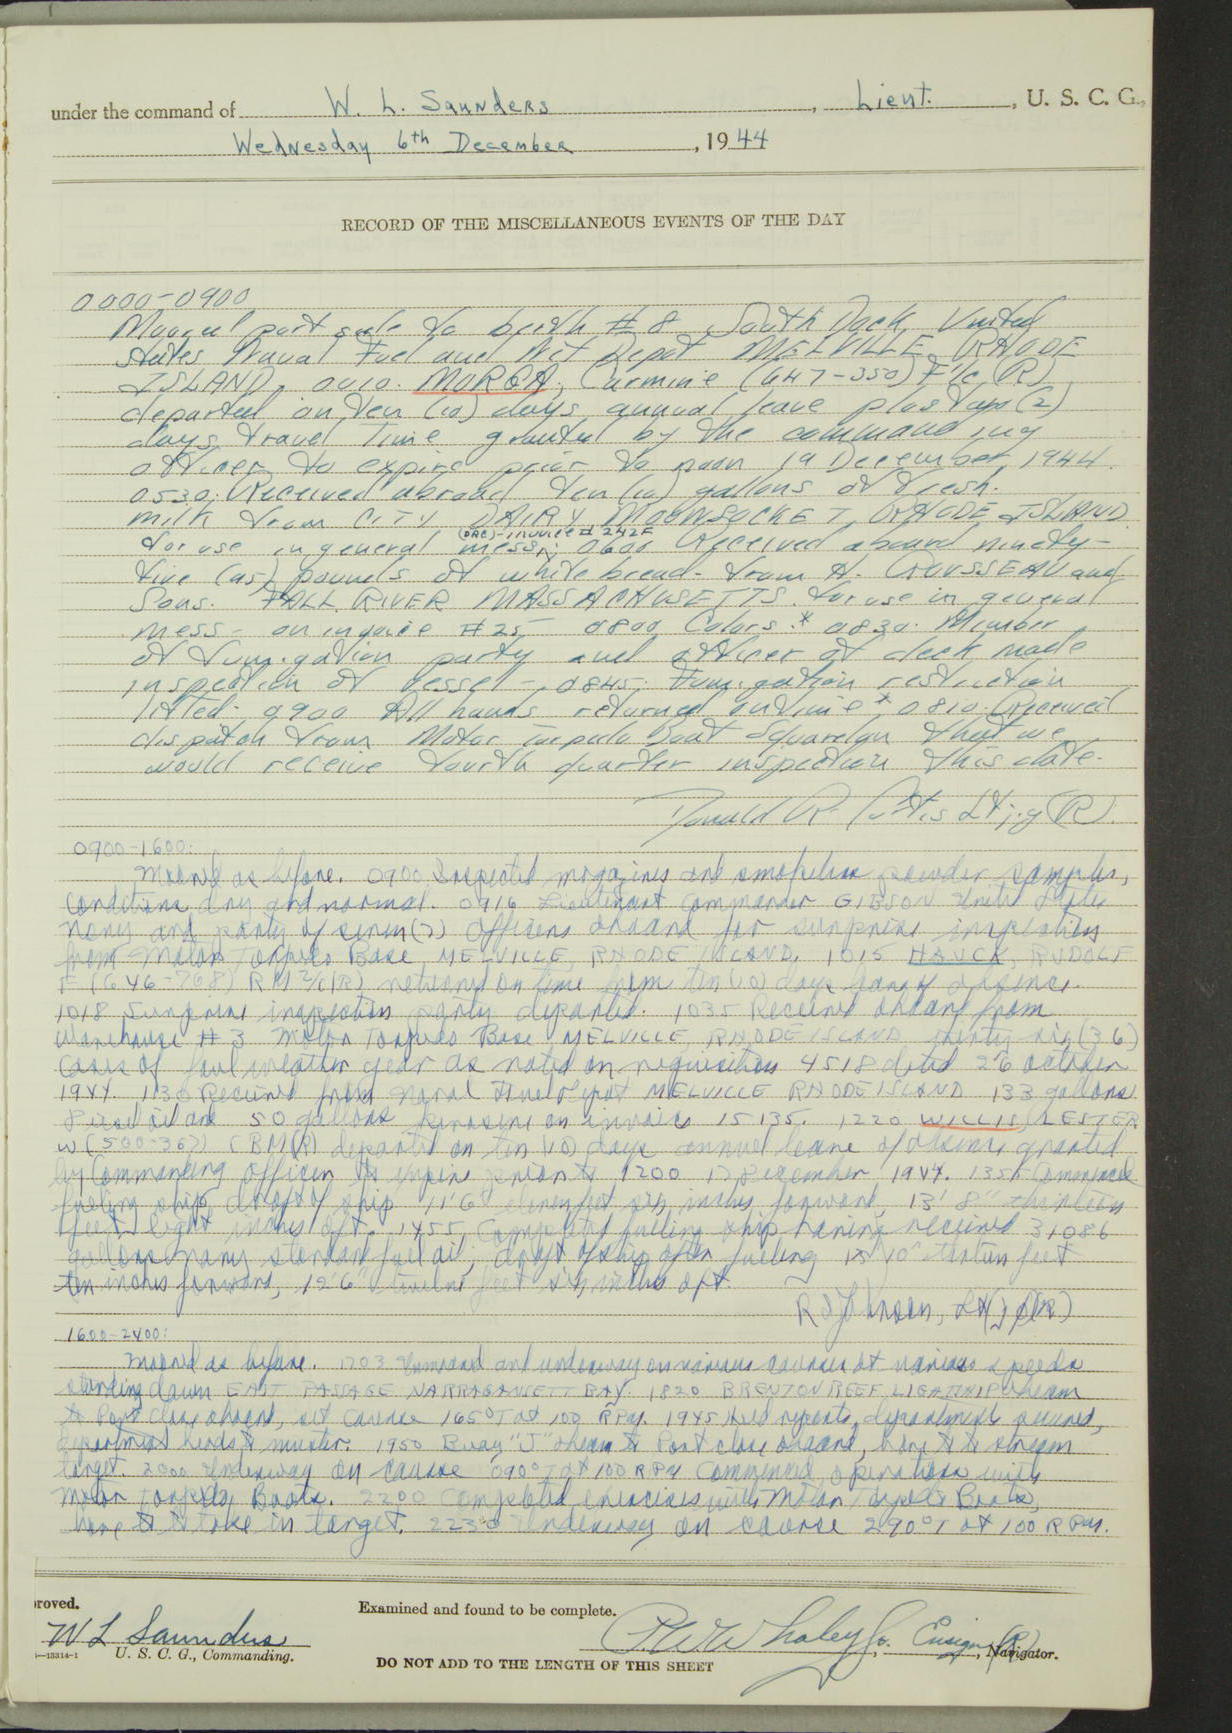 under the command of W. L. Saunders, Lieut., U. S. C. G.,
Wednesday 6th December, 1944
RECORD OF THE MISCELLANEOUS EVENTS OF THE DAY
0000-0900
Moored port side to berth # 8 South Dock, United
States Naval Fuel and Net Depot MELVILLE RHODE
ISLAND. 0010. MORGA, Carmine (647-350) F1/c (R)
departed on ten (10) days annual leave plus two (2)
days travel time granted by the commanding
officer to expire prior to noon 19 December, 1944.
0530. Received abroad ten (10) gallons of fresh
milk from CITY DAIRY WOONSOCKET, RHODE ISLAND
(DRC)-invoice # 242F
for use in general mess. 0600 Received aboard ninety-
five (95) pounds of white bread from A. ROUSSEAU and
Sons. FALL RIVER MASSACHUSETTS for use in general
mess - on invoice #25 0800 Colors.* 0830. Member
of fumigation party and officer of deck made
inspection of vessel - 0845. Fumigation restriction
lifted. 0900 All hands returned on time * 0810. Received
dispatch from Motor Torpedo Boat Squadron that we
would receive fourth quarter inspection this date.
Donald R. Lt. j.g (R).
0900-1600:
Moored as before. 0900 Inspected magazines and smokeless powder samples,
conditions dry and normal. 0916 Lieutenant Commander GIBSON United States
Navy and party of seven (7) officers aboard for surprise inspection
from Motor Torpedo Base, MELVILLE, RHODE ISLAND. 1015 HAUCK, RUDOLF
F (646-768) RM 2/c (R) returned on time from ten (10) days leave of absence.
1018 Surprise inspection party departed. 1035 Received aboard from
Warehouse # 3 Motor Torpedo Base MELVILLE, RHODE ISLAND thirty six (36)
cases of foul weather gear as noted on requisition 4518 dated 26 October
1944. 1130 Received from Naval Fuel Depot MELVILLE RHODE ISLAND 133 gallons
oil and 50 gallons kerosene on invoice 15135. 1220 WILLIS, LESTER
W (500-367) CBM(R) departed on ten (10) days annual leave of absence granted
by Commanding officer to expire prior to 1200 17 December 1944. 1355 Commenced
fueling ship, draft of ship 11'6" eleven feet six inches forward, 13' 8" thirteen
feet eight inches aft. 1455, Completed fueling ship having received 31086
gallons navy standard fuel oil, draft of ship after fueling 13'10" thirteen feet
ten inches forward, 12'6" twelve feet six inches aft.
R J Johnson, Lt(jg)(R)
1600-2400:
Moored as before. 1703 Unmoored and underway on various courses at various speeds
standing down EAST PASSAGE NARRAGANSETT BAY. 1820 BRENTON REEF LIGHTSHIP abeam
to Port close aboard, set course 165°T at 100 RPM. 1945 Held reports, departments secured,
department heads to muster. 1950 Buoy "J" abeam to Port close aboard, hove to to stream
target. 2000 Underway on course 090°T at 100 RPM Commenced operations with
Motor Torpedo Boats. 2200 Completed exercises with Motor Torpedo Boats,
hove to to take in target. 2230 Underway on course 290°T at 100 RPM.
roved. Examined and found to be complete.
W L Saunders P.W. Whaley Jr., Ensign (R)
U. S. C. G., Commanding. Navigator.
—13314-1
DO NOT ADD TO THE LENGTH OF THIS SHEET